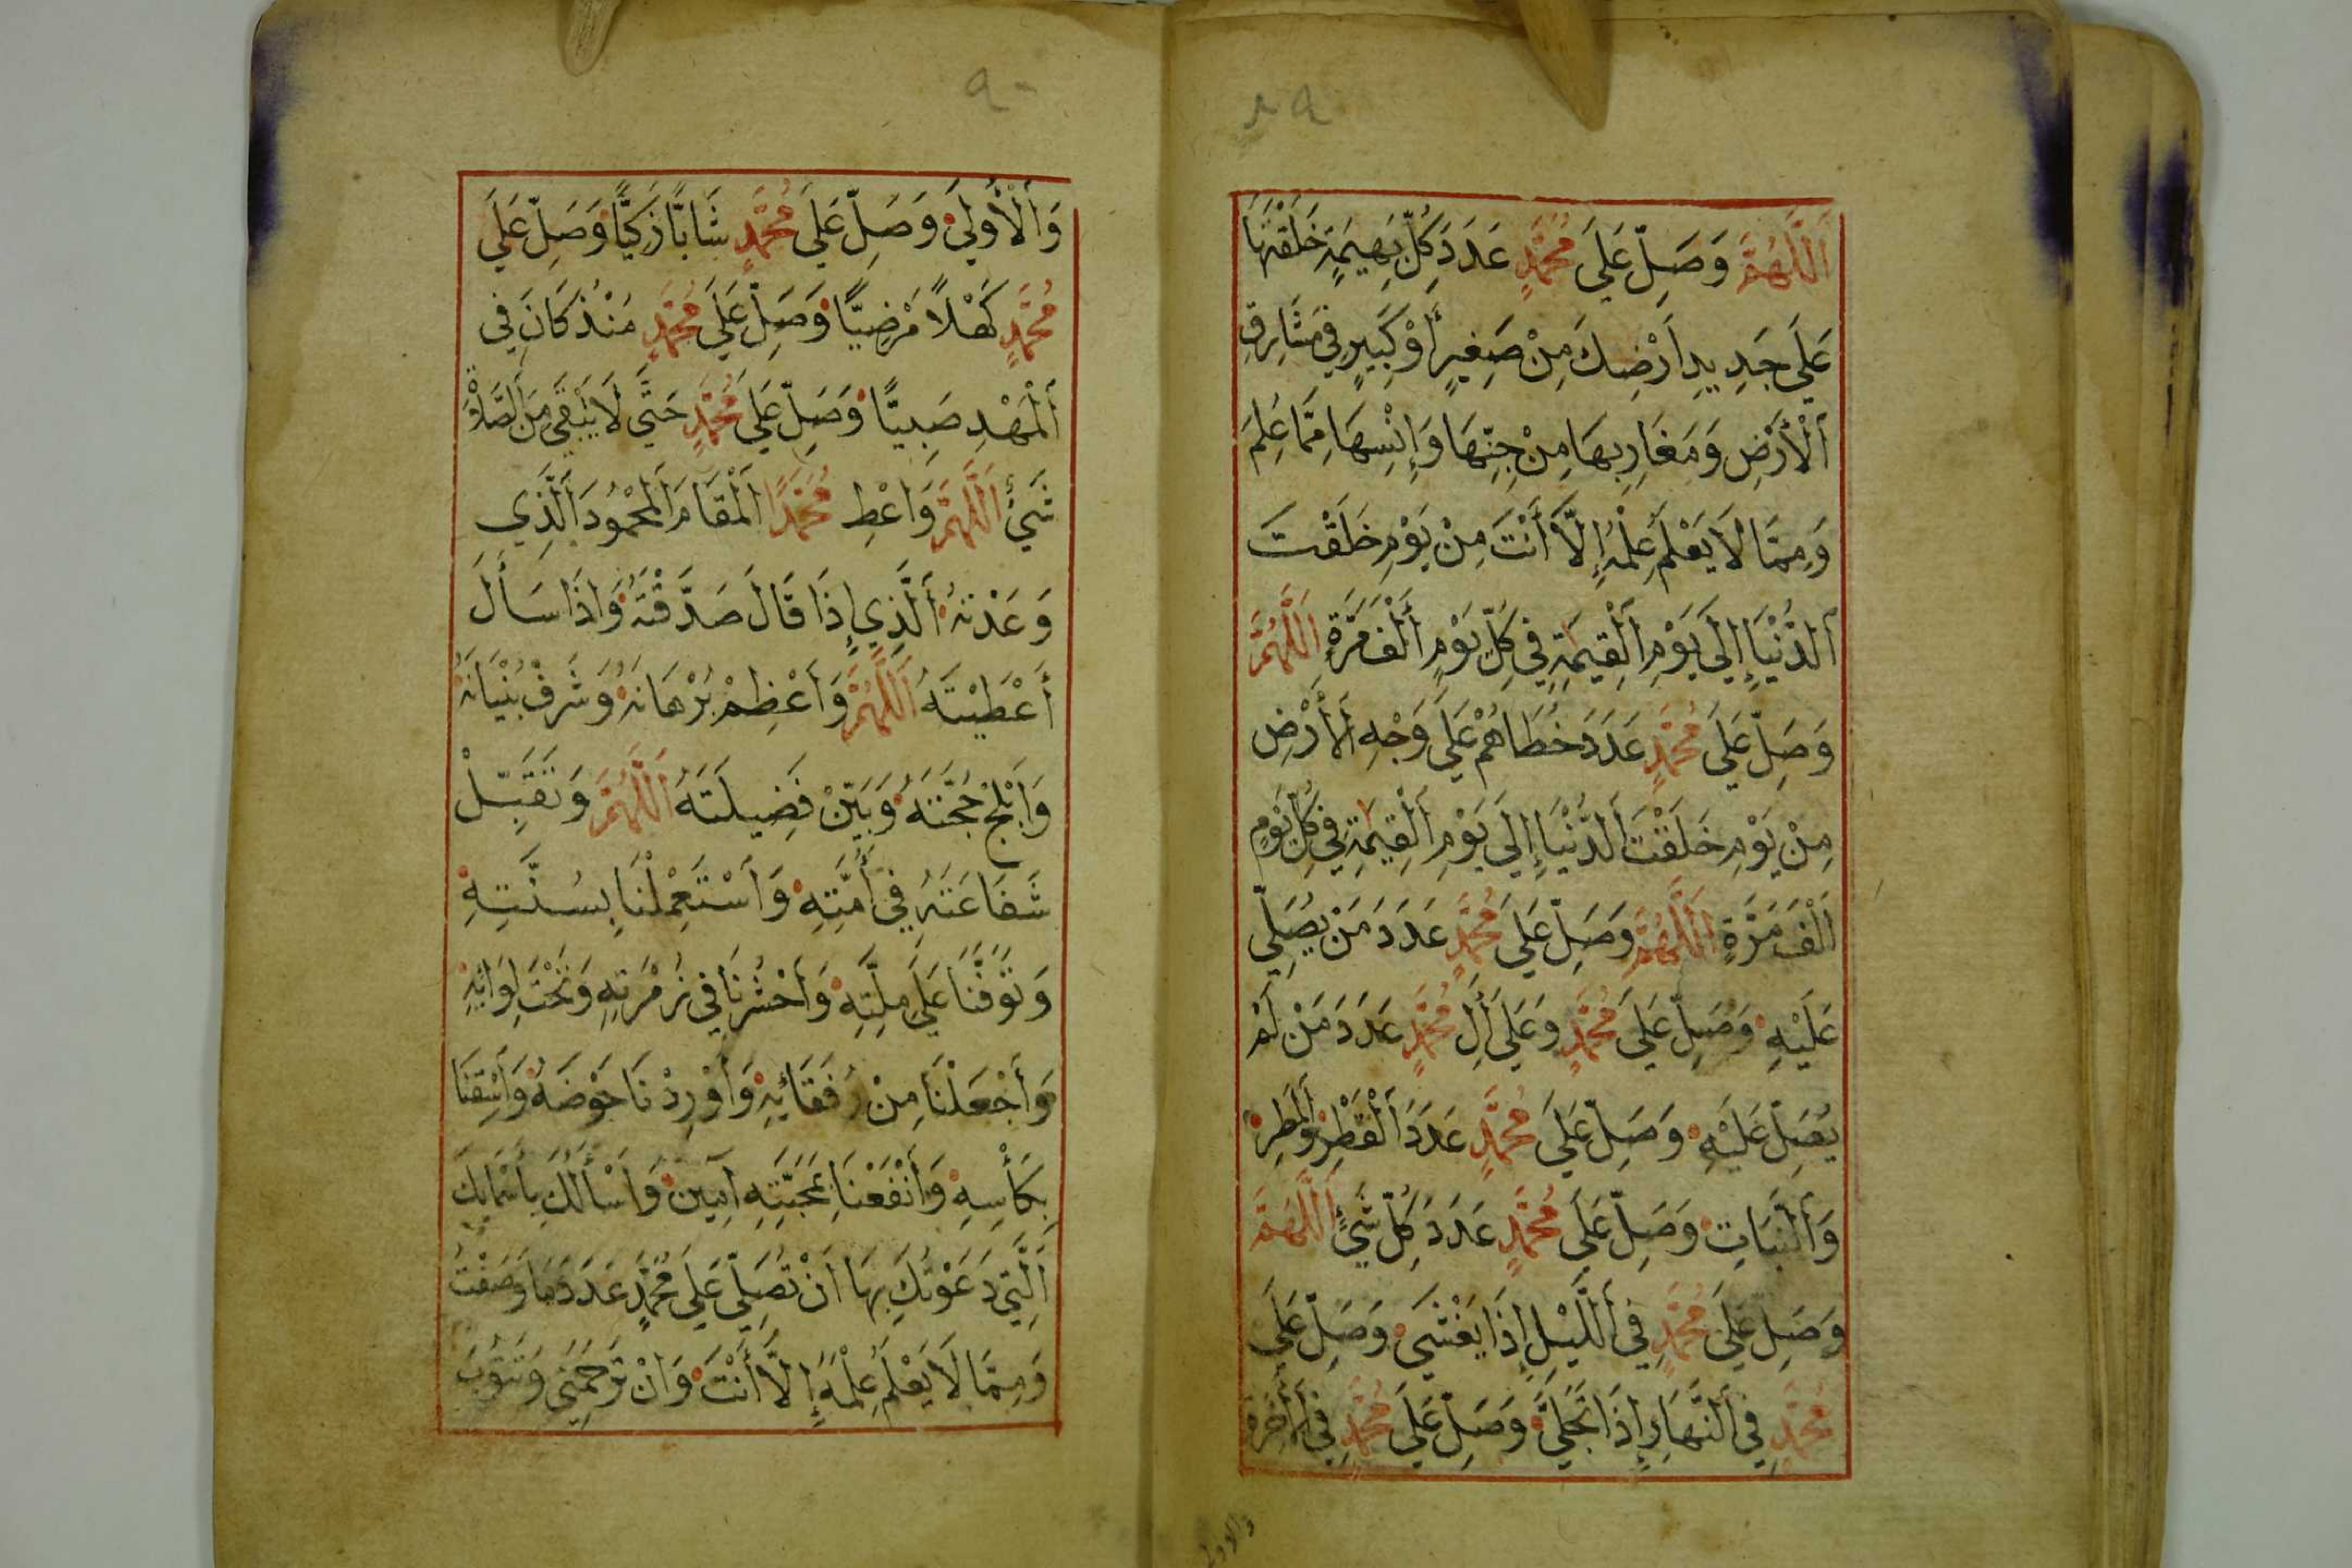 ٨٩
اَللَّهُمَّ وَصَلِّ عَلَى مُحَمَّدٍ عَدَدَ كُلِّ بَهِيمَةٍ خَلَقْتَهَا
عَلَى جَدِيدِ اَرْضِكَ مِنْ صَغِيرٍ أَوْ كَبِيرٍ فِي مَشَارِقِ
اَلْأَرْضِ وَمَغَارِبِهَا مِنْ جِنِّهَا وَإِنْسِهَا مِمَّا عُلِمَ
وَمِمَّا لَا يَعْلَمُ عِلْمَهُ إِلَّا أَنْتَ مِنْ يَوْمِ خَلَقْتَ
اَلدُّنْيَا إِلَى يَوْمِ اَلْقِيٰمَةِ فِي كُلِّ يَوْمٍ أَلْفَ مَرَّةٍ اَللَّهُمَّ
وَصَلِّ عَلَى مُحَمَّدٍ عَدَدَ خُطَاهُمْ عَلَى وَجْهِ اَلْأَرْضِ
مِنْ يَوْمِ خَلَقْتَ اَلدُّنْيَا إِلَى يَوْمِ اَلْقِيٰمَةِ فِي كُلِّ يَوْمٍ
اَلْفَ مَرَّةٍ اَللَّهُمَّ وَصَلِّ عَلَى مُحَمَّدٍ عَدَدَ مَنْ يُصَلِّي
عَلَيْهِ وَصَلِّ عَلَى مُحَمَّدٍ وَعَلَى أٰلِ مُحَمَّدٍ عَدَدَ مَنْ لَمْ
يُصَلِّ عَلَيْهِ وَصَلِّ عَلَى مُحَمَّدٍ عَدَدَ اَلْقَطْرِ وَالْمَطَرِ
وَاَلنَّبَاتِ وَصَلِّ عَلَى مُحَمَّدٍ عَدَدَ كُلِّ شَيْءٍ اَللَّهُمَّ
وَصَلِّ عَلَى مُحَمَّدٍ فِي اَللَّيْلِ إِذَا يَغْشَى وَصَلِّ عَلَى
مُحَمَّدٍ فِي اَلنَّهَارِ إِذَا تَجَلَّى وَصَلِّ عَلَى مُحَمَّدٍ فِي اَلْأٰخِرَةِ
والاولى
٩٠
وَاَلْأُولَى وَصَلِّ عَلَى مُحَمَّدٍ شَابًّا زَكِيًّا وَصَلِّ عَلَى
مُحَمَّدٍ كَهْلًا مَرْضِيًّا وَصَلِّ عَلَى مُحَمَّدٍ مُنْذُ كَانَ فِي
اَلْمَهْدِ صَبِيًّا وَصَلِّ عَلَى مُحَمَّدٍ حَتَّى لَا يَبْقَى مِنَ اَلصَّلَاةِ
شَيْءٌ اَللَّهُمَّ وَاَعْطِ مُحَمَّدًا اَلْمَقَامَ اَلْمَحْمُودَ اَلَّذِي
وَعَدْتَهُ اَلَّذِي إِذَا قَالَ صَدَّقْتَهُ وَاِذَا سَأَلَ
أَعْطَيْتَهُ اَللَّهُمَّ وَاَعْظِمْ بُرْهَانَهُ وَشَرِّفْ بُنْيَانَهُ
وَاَبْلِجْ حُجَّتَهُ وَبَيِّنْ فَضِيلَتَهُ اَللَّهُمَّ وَتَقَبَّلْ
شَفَاعَتَهُ فِي أُمَّتِهِ وَاَسْتَعْمِلْنَا بِسُنَّتِهِ
وَتَوَفَّنَا عَلَى مِلَّتِهِ وَاَحْشُرْنَا فِي زُمْرَتِهِ وَتَحْتَ لِوَائِهِ
وَاَجْعَلْنَا مِنْ رُفَقَائِهِ وَاَوْرِدْنَا حَوْضَهُ وَاَسْقِنَا
بِكَأْسِهِ وَاَنْفَعْنَا بِمَحَبَّتِهِ اٰمِينَ وَاَسْأَلُكَ بِأَسْمَائِكَ
اَلَّتِي دَعَوْتُكَ بِهَا اَنْ تُصَلِّيَ عَلَى مُحَمَّدٍ عَدَدَ مَا وَصَفْتُ
وَمِمَّا لَا يَعْلَمُ عِلْمَهُ إِلَّا أَنْتَ وَاَنْ تَرْحَمَنِي وَتَتُوبَ